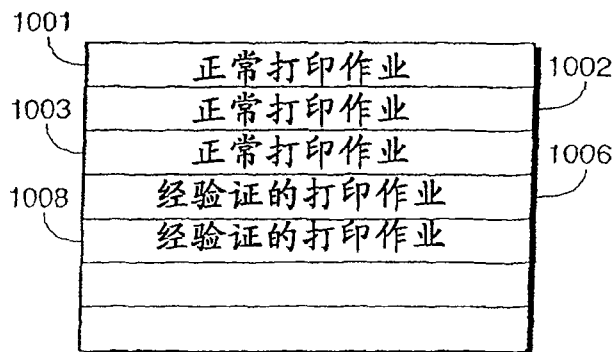 1001
正常打印作业
1002
正常打印作业
1003
正常打印作业
1006
经验证的打印作业
1008
经验证的打印作业